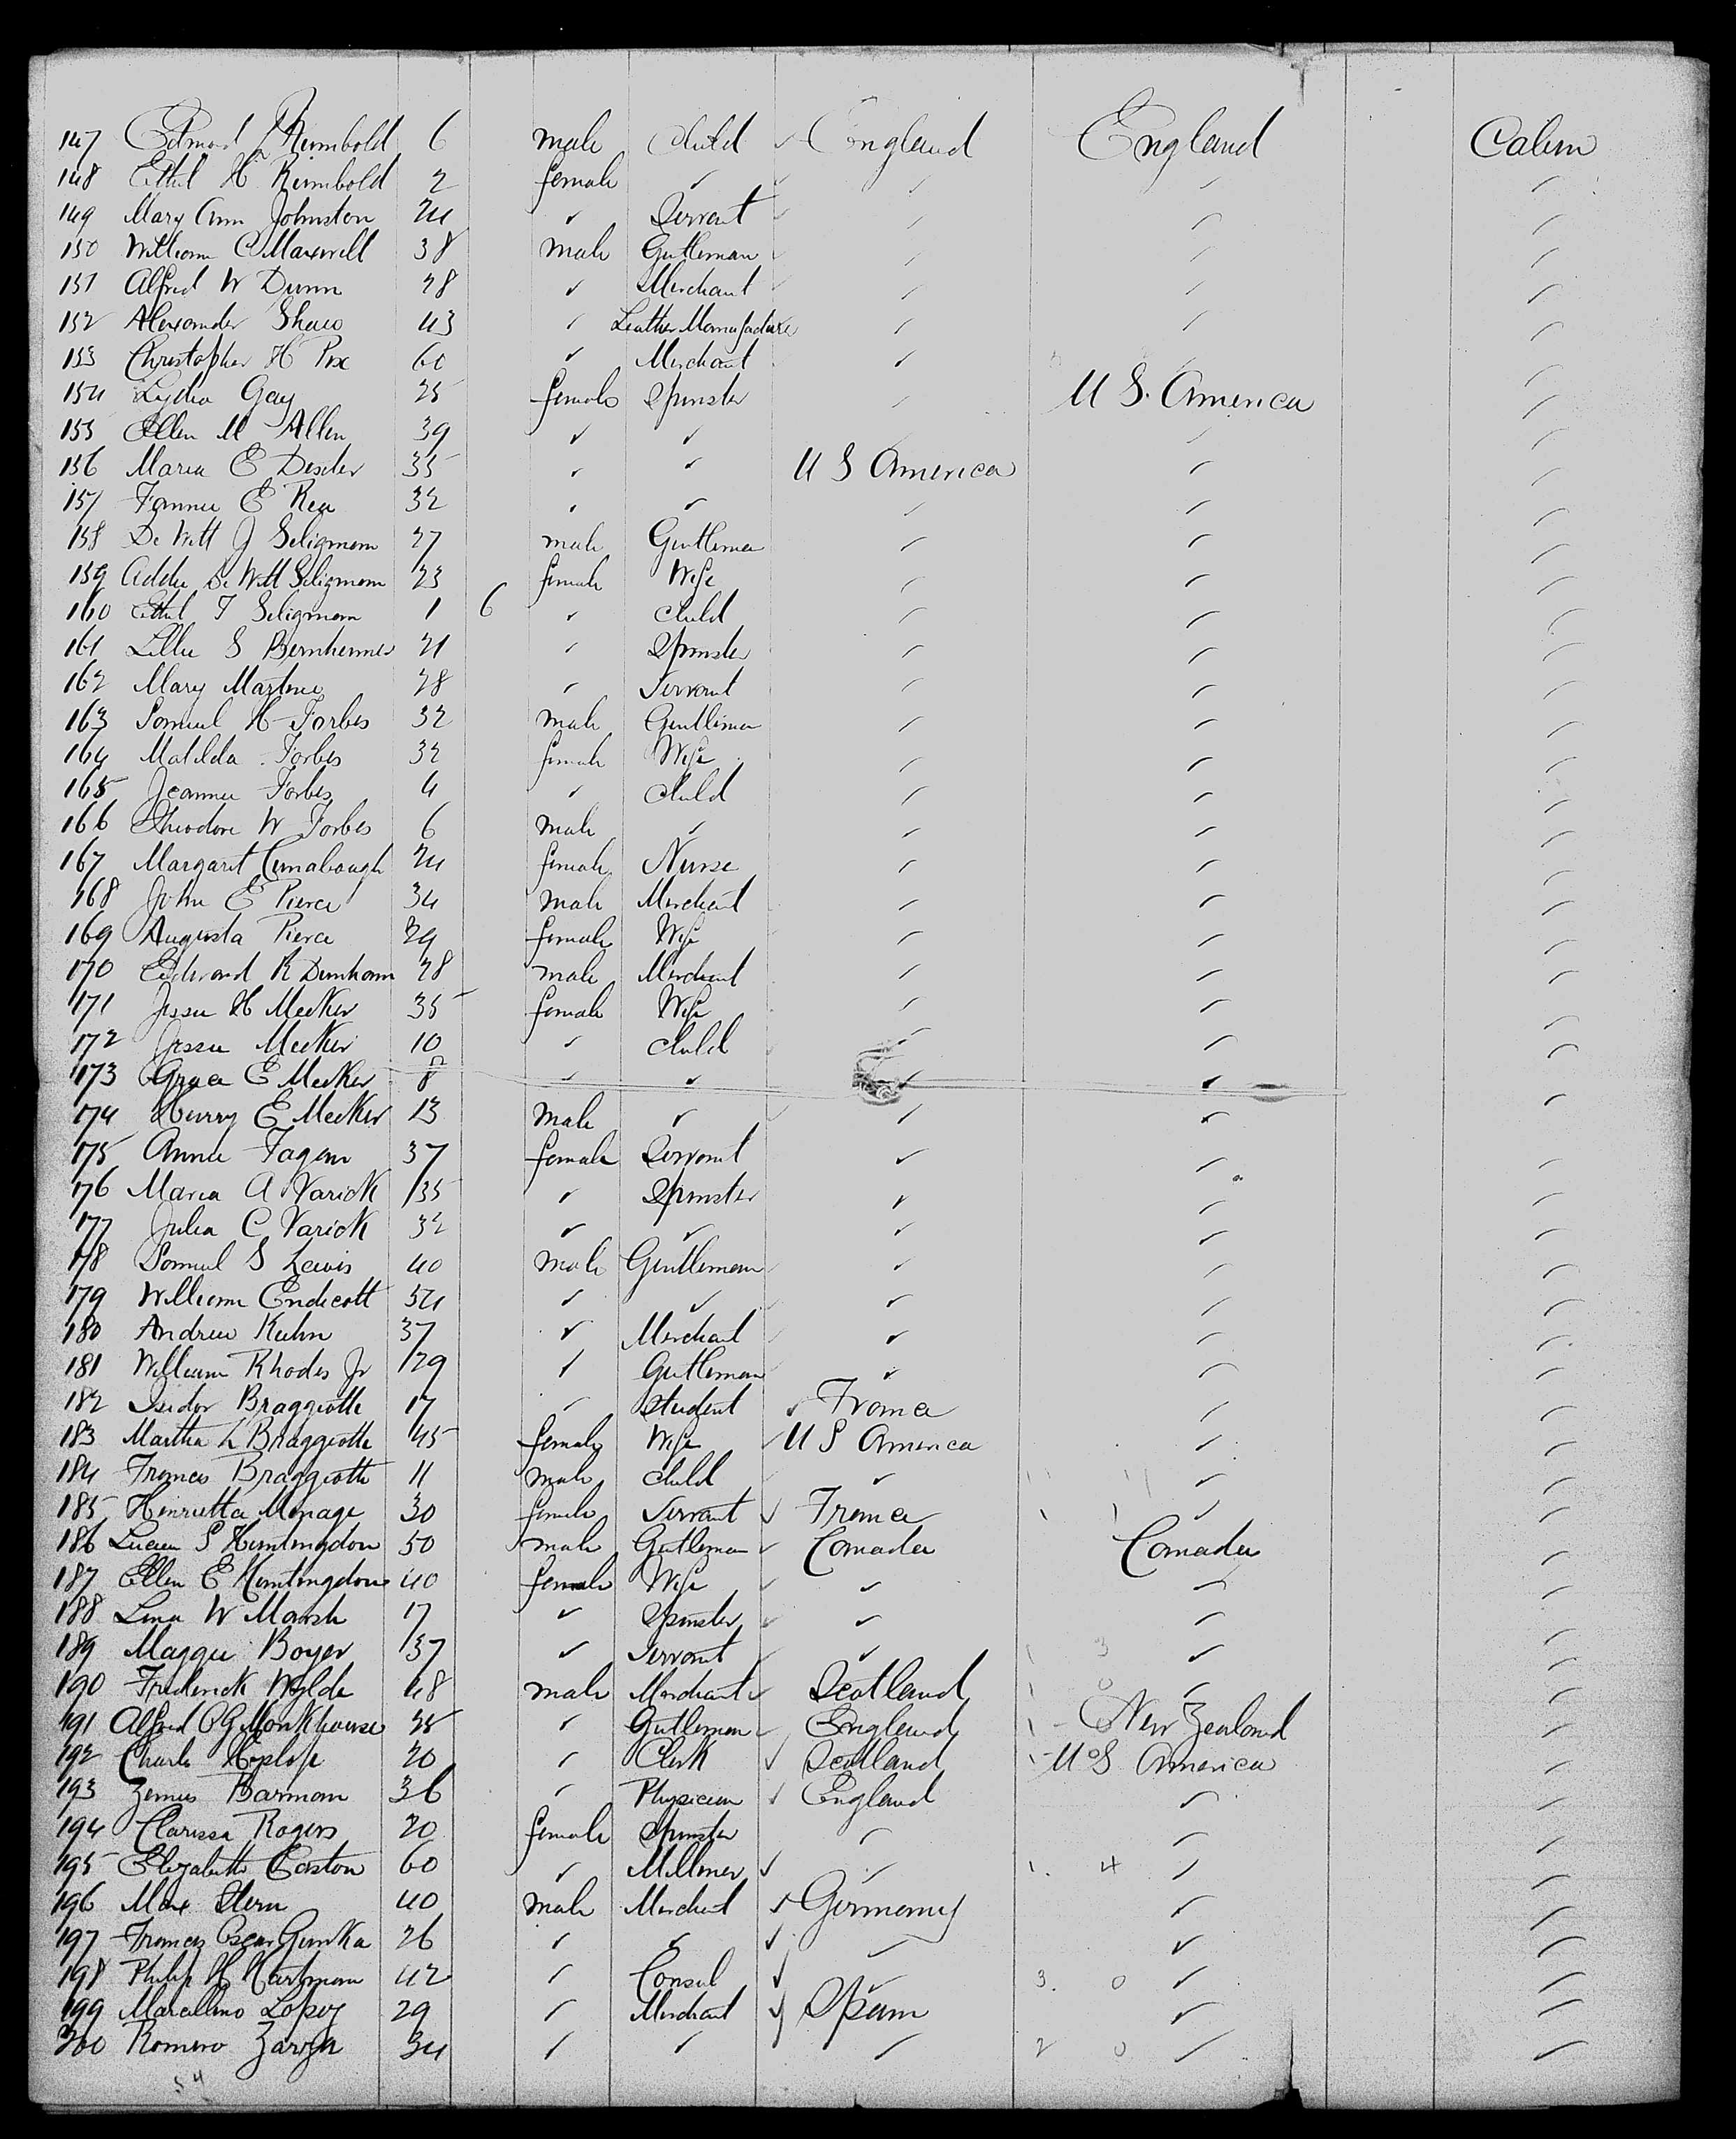 147 Edmond J Rumbold 6 male Child ✓ England England Cabin
148 Ethel H Rumbold 2 female ✓ ✓ ✓ ✓
149 Mary Ann Johnston 24 ✓ Servant ✓ ✓ ✓ ✓
150 William C Maxwell 38 male Gentleman ✓ ✓ ✓ ✓
151 Alfred W Dunn 28 ✓ Merchant ✓ ✓ ✓ ✓
152 Alexander Shaw 43 ✓ Leather Manufacture ✓ ✓ ✓
153 Christopher H Pix 60 ✓ Merchant ✓ ✓
154 Lydia Gay 25 female Spinster ✓ U S. America ✓
155 Ellen M Allen 39 ✓ ✓ ✓ ✓ ✓
156 Maria E Dexter 35 ✓ ✓ U S America ✓ ✓
157 Fannie E Rea 32 ✓ ✓ ✓ ✓ ✓
158 De Witt J Seligman 27 male Gentleman ✓ ✓ ✓
159 Addie De Witt Seligman 23 female Wife ✓ ✓ ✓
160 Ethel T Seligman 1 6 ✓ Child ✓ ✓ ✓
161 Lillie S Bernheimer 21 ✓ Spinster ✓ ✓ ✓
162 Mary Martine 28 ✓ Servant ✓ ✓ ✓
163 Samuel H Forbes 32 male Gentleman ✓ ✓ ✓
164 Matilda Forbes 32 female Wife ✓ ✓ ✓
165 Jeannie Forbes 4 ✓ Child ✓ ✓ ✓
166 Theodore W Forbes 6 male ✓ ✓ ✓ ✓
167 Margaret 24 female Nurse ✓ ✓ ✓
168 John E Pierce 34 male Merchant ✓ ✓ ✓
169 Augusta Pierce 29 female Wife ✓ ✓ ✓
170 Edward R Dunham 28 male Merchant ✓ ✓ ✓
171 Jessie H Meeker 35 female Wife ✓ ✓ ✓
172 Jessie Meeker 10 ✓ Child ✓ ✓ ✓
173 Grace E Meeker 8 ✓ ✓ ✓ ✓
174 Harry E Meeker 13 male ✓ ✓ ✓ ✓
175 Annie Fagan 37 female Servant ✓ ✓ ✓
176 Maria A Varick 35 ✓ Spinster ✓ ✓ ✓
177 Julia C Varick 32 ✓ ✓ ✓ ✓ ✓
178 Samuel S Lewis 40 male Gentleman ✓ ✓ ✓
179 William Endicott 54 ✓ ✓ ✓ ✓ ✓
180 Andrew Kuhn 37 ✓ Merchant ✓ ✓ ✓
181 William Rhodes Jr 29 ✓ Gentleman ✓ ✓ ✓
182 Isidor Braggiotte 17 ✓ Student ✓ France ✓ ✓
183 Martha L Braggiotte 45 female Wife ✓ U S America ✓ ✓
184 Frances Braggiotte 11 male Child ✓ ✓ ✓
185 Henrietta Menage 30 female Servant ✓ France ✓ ✓
186 Lucien S Huntingdon 50 male Gentleman ✓ Canada Canada ✓
187 Ellen E Huntingdon 40 female Wife ✓ ✓ ✓ ✓
188 Lena W Marsh 17 ✓ Spinster ✓ ✓ ✓ ✓
189 Maggie Boyer 37 ✓ Servant ✓ ✓ ✓
190 Frederick Wylde 48 male Merchant ✓ Scotland ✓ ✓
191 Alfred Monkhouse ✓ Gentleman ✓ England New Zealand ✓
192 Charles Heslop 20 ✓ Clerk ✓ Scotland U S America ✓
193 Barman 36 ✓ Physician ✓ England ✓ ✓
194 Clarissa Rogers 20 female Spinster ✓ ✓ ✓
195 Elizabeth Easton 60 ✓ Milliner ✓ ✓ 1. 4 ✓ ✓
196 Max Stern 40 male Merchant ✓ Germany ✓ ✓
197 Frances Oscar 26 ✓ ✓ ✓ ✓ ✓ ✓
198 Philip H Hartman 42 ✓ Consul ✓ ✓ 3. 0 ✓ ✓
199 Marcellino Lopez 29 ✓ Merchant ✓ Spain ✓ ✓
200 Romero 34 ✓ ✓ ✓ 2 0 ✓ ✓
54